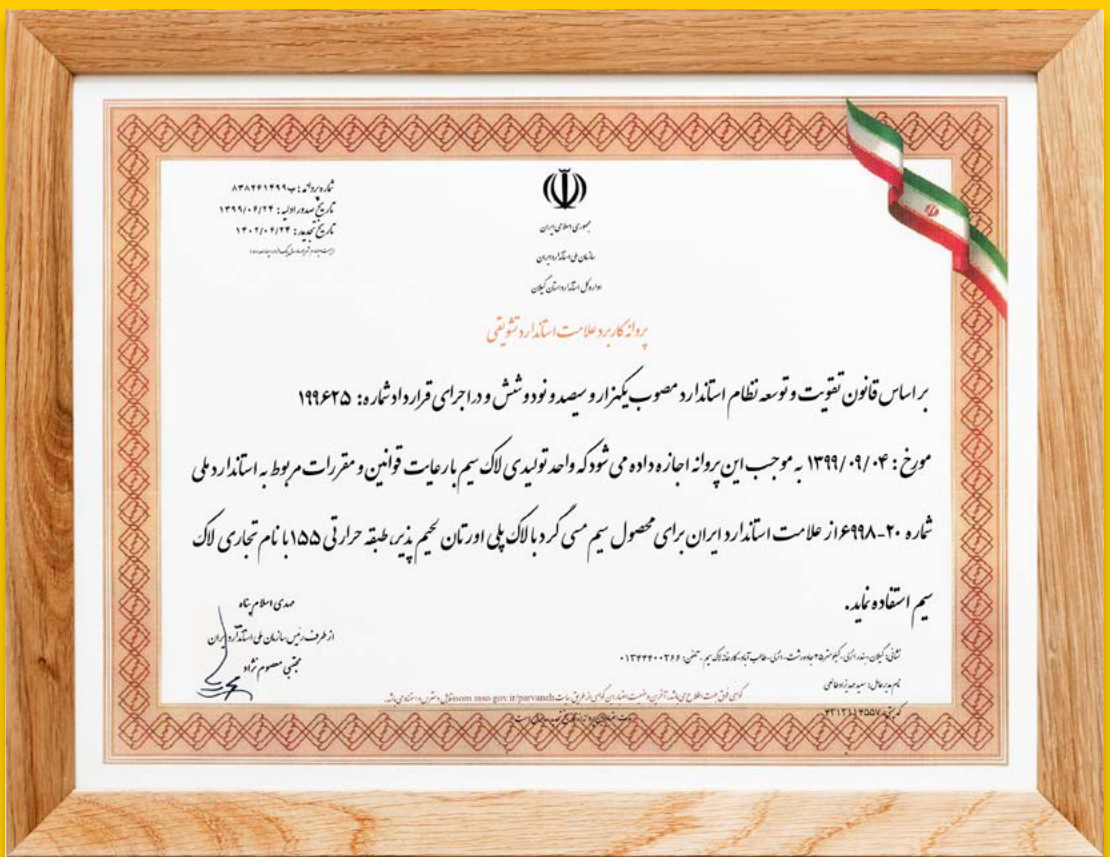 شماره پروانه: ب۸۳۸۲۶۱۴۹۹
تاریخ صدور اولیه: ۱۳۹۹/۰۶/۲۴
تاریخ تجدید: ۱۴۰۲/۰۶/۲۴
جمهوری اسلامی ایران
سازمان ملی استاندارد ایران
اداره کل استاندارد استان گیلان
پروانه کاربرد علامت استاندارد تشویقی
بر اساس قانون تقویت و توسعه نظام استاندارد مصوب یکهزار و سیصد و نود و شش و در اجرای قرارداد شماره: ۱۹۹۶۲۵
مورخ: ۱۳۹۹/۰۹/۰۴ به موجب این پروانه اجازه داده می شود که واحد تولیدی لاک سیم با رعایت قوانین و مقررات مربوط به استاندارد ملی
شماره ۲۰-۶۹۹۸ از علامت استاندارد ایران برای محصول سیم مسی گرد با لاک پلی اورتان لحیم پذیر، طبقه حرارتی ۱۵۵ با نام تجاری لاک
سیم استفاده نماید.
مهدی اسلام پناه
از طرف رئیس سازمان ملی استاندارد ایران
مجتبی معصوم نژاد
نشانی: گیلان، بندر انزلی، کیلومتر ۲۵ جاده رشت - انزلی - طالب آباد، کارخانه لاک سیم، تلفن: ۰۱۳۴۴۴۰۰۲۶۶
نام مدیرعامل:
گواهی فوق جهت اطلاع می باشد. آخرین وضعیت اعتبار این گواهی از طریق سایت isom.inso.gov.ir/parvaneh قابل دسترس و استناد می باشد.
کد پستی: